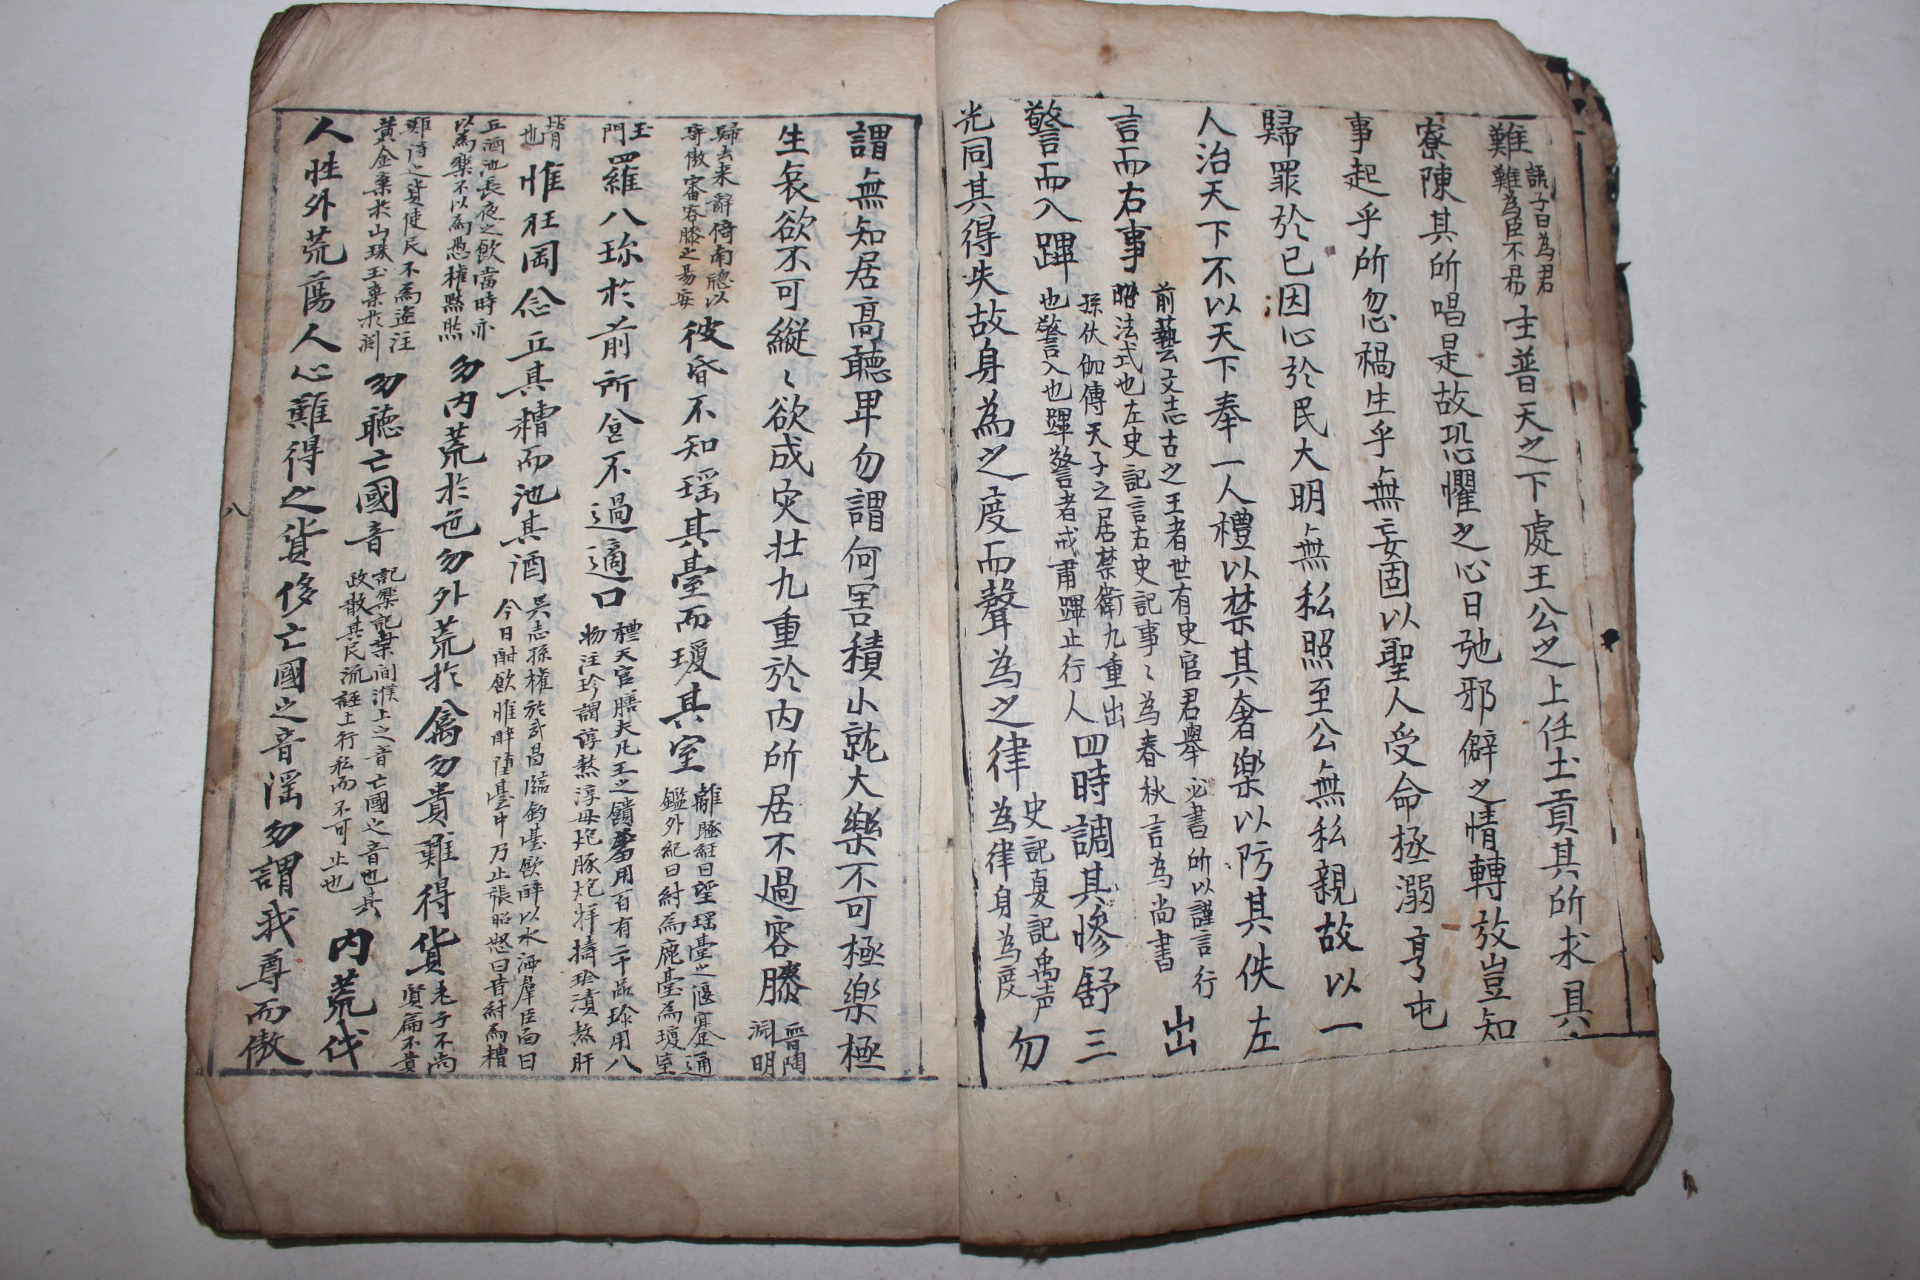 難語子曰為君難為臣不易士普天之下處王公之上任土貢其所求具
寮陳其所唱是故恐懼之心日弛邪僻之情轉放豈知
事起乎所忽禍生乎無妄固以聖人受命極溺亨屯
歸罪於已因心於民大明無私照至公無私親故以一
人治天下不以天下奉一人禮以禁其奢樂以防其佚左
言而右事前藝文志古之王者世有史官君舉必書所以謹言行昭法式也左史記言右史記事〻為春秋言為尚書出
警而入蹕孫伏伽傳天子之居禁衛九重出也警入也蹕警者戒肅蹕止行人四時調其慘舒三
光同其得失故身為之度而聲為之律史記夏記禹声為律身為度勿
謂無知居高聽卑勿謂何害積小就大樂不可極樂極
生哀欲不可縱〻欲成灾壮九重於内所居不過容膝晋陶淵明
歸去来辭倚南牕以寄傲審容膝之易安彼昏不知瑶其臺而瓊其室離騷経曰望瑶臺之偃蹇通鑑外紀曰紂為鹿臺為瓊室
玉門羅八珎於前所食不過適口禮天官膳夫凡王之饋羞用百有二十品珎用八物注珍謂淳熬淳母炮豚炮牂擣珎漬熬肝
膋也惟狂罔念丘其糟而池其酒吳志孫權於武昌臨釣臺飲醉以水洒羣臣面曰今日酣飲惟醉墮臺中乃止張昭怒曰昔紂為糟
丘酒池長夜之飲當時亦以為樂不以為惡權黙然勿内荒於色勿外荒於禽勿貴難得貨老子不尚賢篇不貴
難得之貨使民不為盗注黄金棄於山珠玉棄於淵勿聽亡國音記樂記桒间濮上之音亡國之音也其政散其民流誣上行私而不可止也内荒伐
人性外荒蕩人心難得之貨侈亡國之音滛勿謂我尊而傲
八